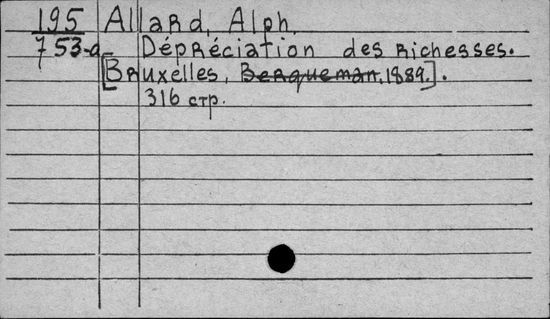 195 Allard, Alph.
753-a Dépréciation des richesses.
[Bruxelles, Berqueman, 1889.].
316 стр.